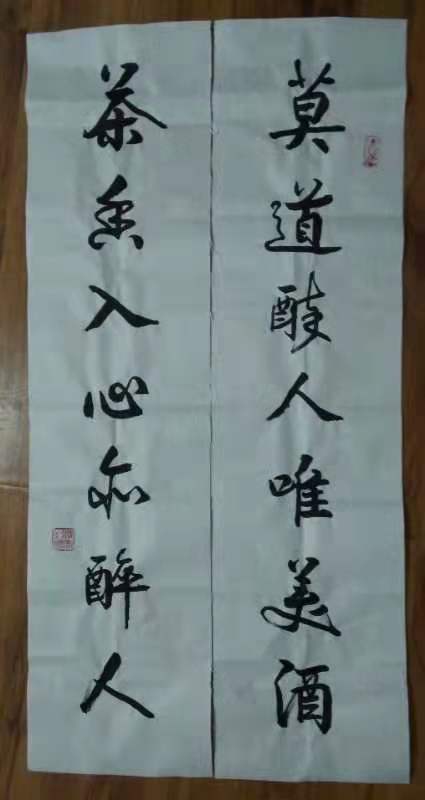 莫道醉人唯美酒
茶香入心亦醉人